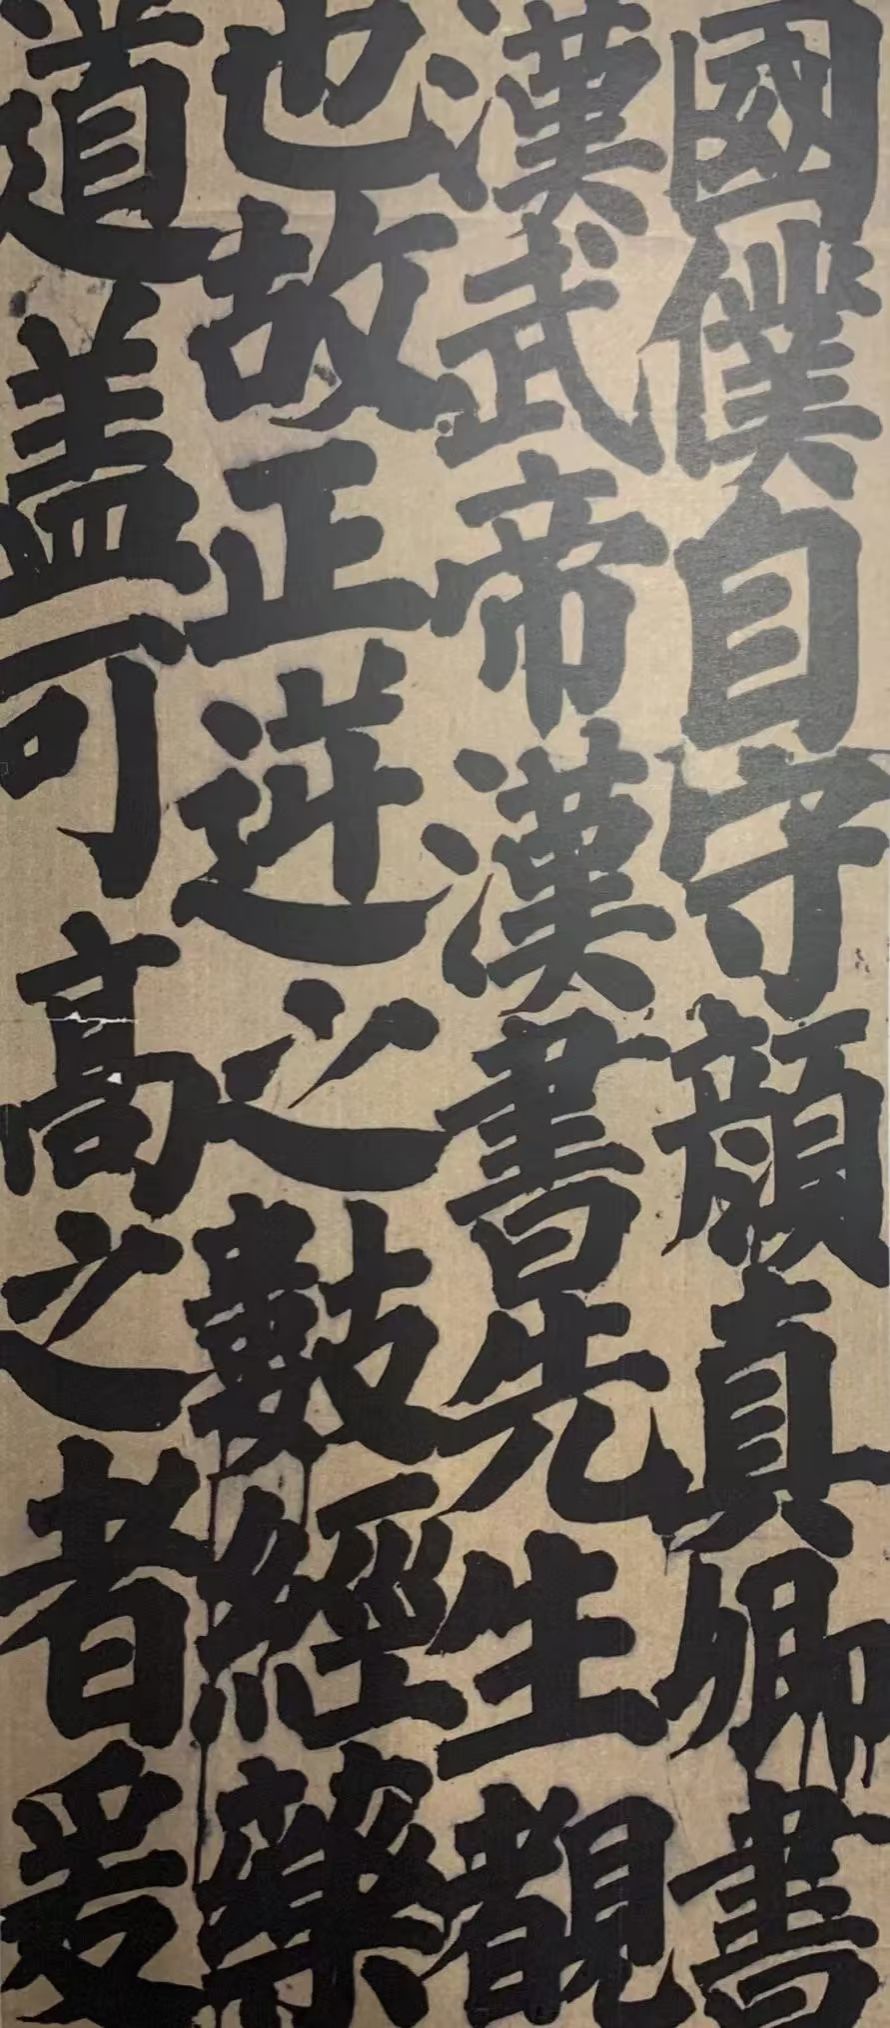 國僕自守顏真卿書
漢武帝漢書先生覩
也故正逆之數經藥
道盖可高之者爰